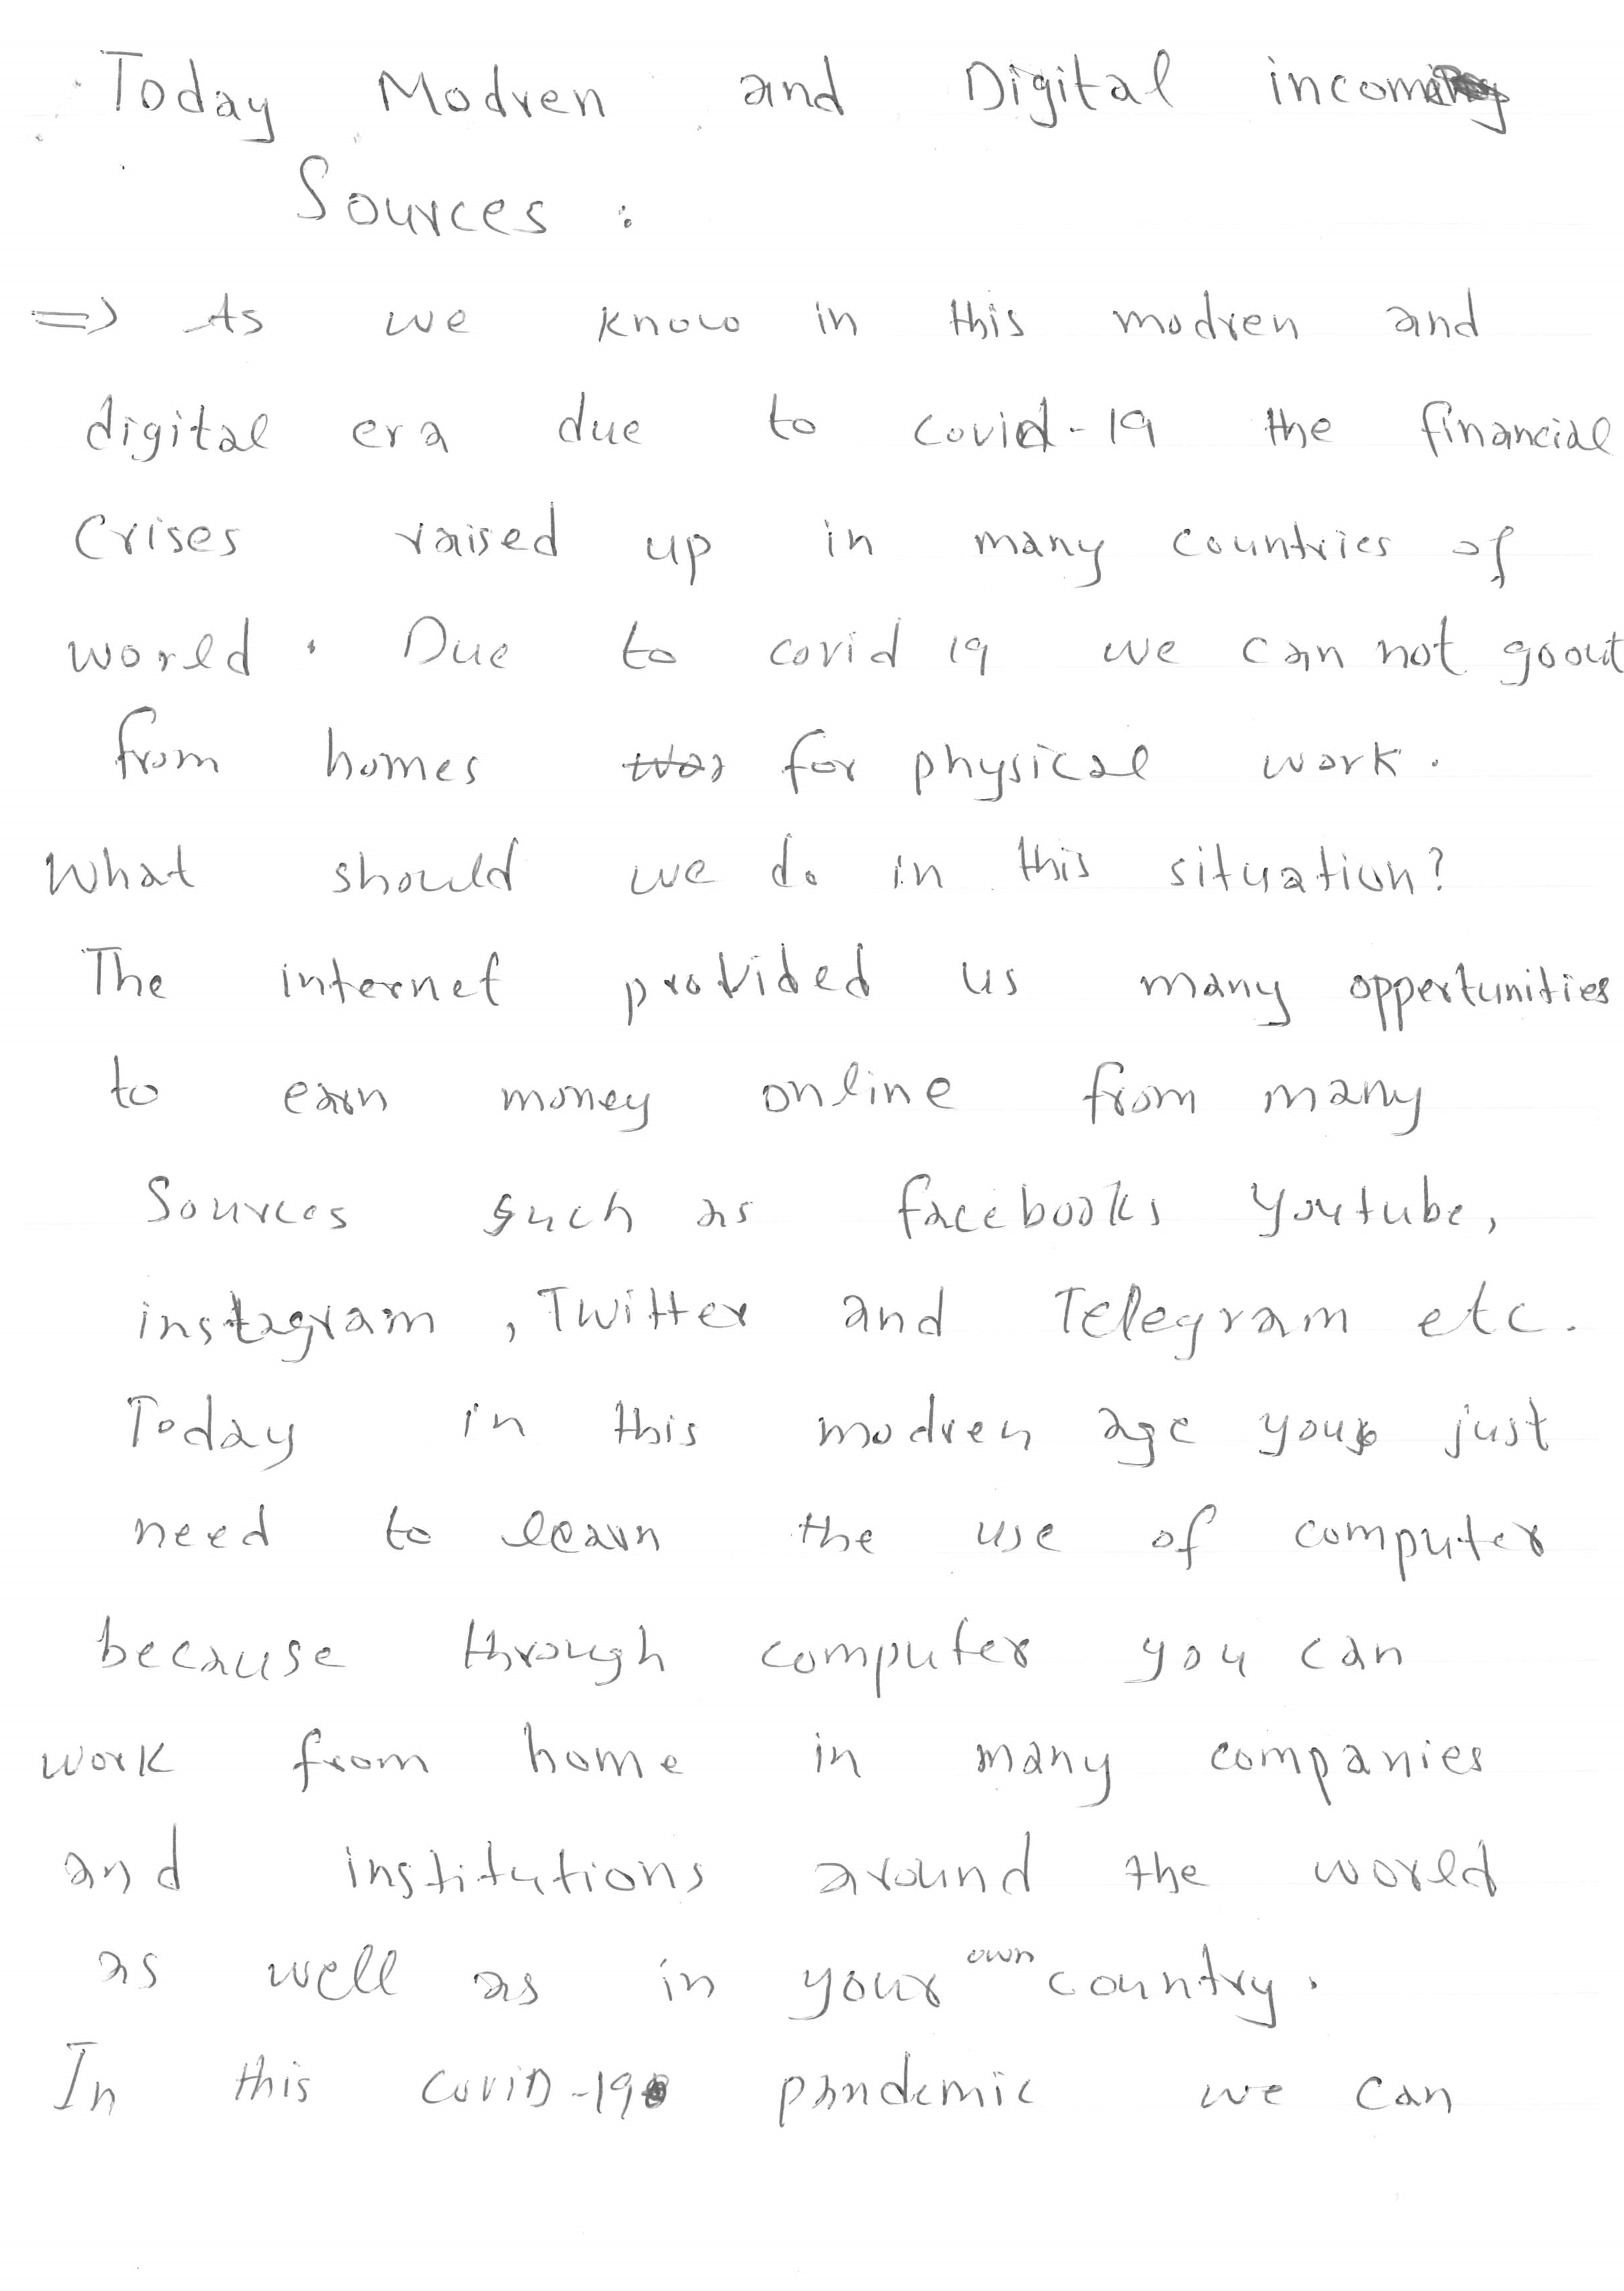 Today Modren and Digital incoming
Sources :
=> As we know in this modren and
digital era due to covid-19 the financial
Crises raised up in many countries of
world. Due to covid 19 we can not goout
from homes for physical work.
What should we do in this situation?
The internet provided us many oppertunities
to earn money online from many
Sources such as facebooks Youtube,
instagram, Twitter and Telegram etc.
Today in this modren age you just
need to learn the use of computer
because through computer you can
work from home in many companies
and institutions around the world
as well as in your own country.
In this coviD-19 pandemic we can